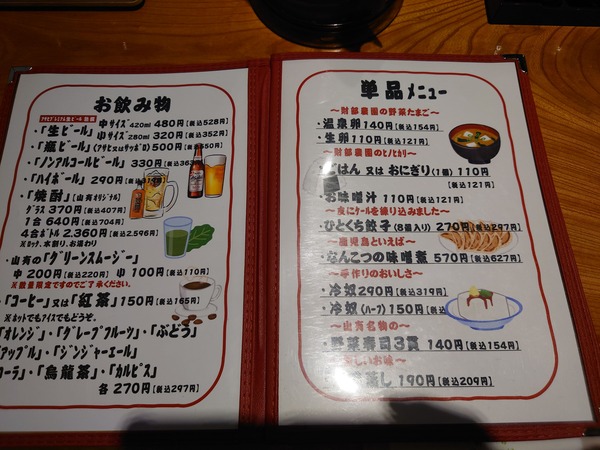 お飲み物
ｱｻﾋﾌﾟﾚﾐｱﾑ生ﾋﾞｰﾙ 熟撰
・「生ビール」 中サイズ 420ml 480円[税込528円]
小サイズ 280ml 320円[税込352円]
・「瓶ビール」(アサヒ又はサッポロ) 500円[税込550円]
・「ノンアルコールビール」 330円[税込363円]
・「ハイボール」 290円[税込319円]
・「焼酎」[山有ｵﾘｼﾞﾅﾙ]
グラス 370円[税込407円]
1合 640円[税込704円]
4合ボトル 2,360円[税込2,596円]
※ロック、水割り、お湯わり
・山有の「グリーンスムージー」
中 200円[税込220円] 小 100円[税込110円]
※数量限定ですのでご了承ください。
「コーヒー」又は「紅茶」150円[税込165円]
※ホットでもアイスでもどうぞ。
「オレンジ」・「グレープフルーツ」・「ぶどう」
アップル」・「ジンジャーエール」
コーラ」・「烏龍茶」・「カルピス」
各 270円[税込297円]
単品メニュー
～財部農園の野菜たまご～
・温泉卵 140円[税込154円]
・生卵 110円[税込121円]
～財部農園のヒノヒカリ～
ごはん 又は おにぎり(1個) 110円
[税込121円]
・お味噌汁 110円[税込121円]
～皮にケールを練り込みました～
・ひとくち餃子(8個入り) 270円[税込297円]
～鹿児島といえば～
・なんこつの味噌煮 570円[税込627円]
～手作りのおいしさ～
・冷奴 290円[税込319円]
・冷奴(ハーフ) 150円[税込
～山有名物の～
・野菜寿司3貫 140円[税込154円]
しいお味～
蒸し 190円[税込209円]